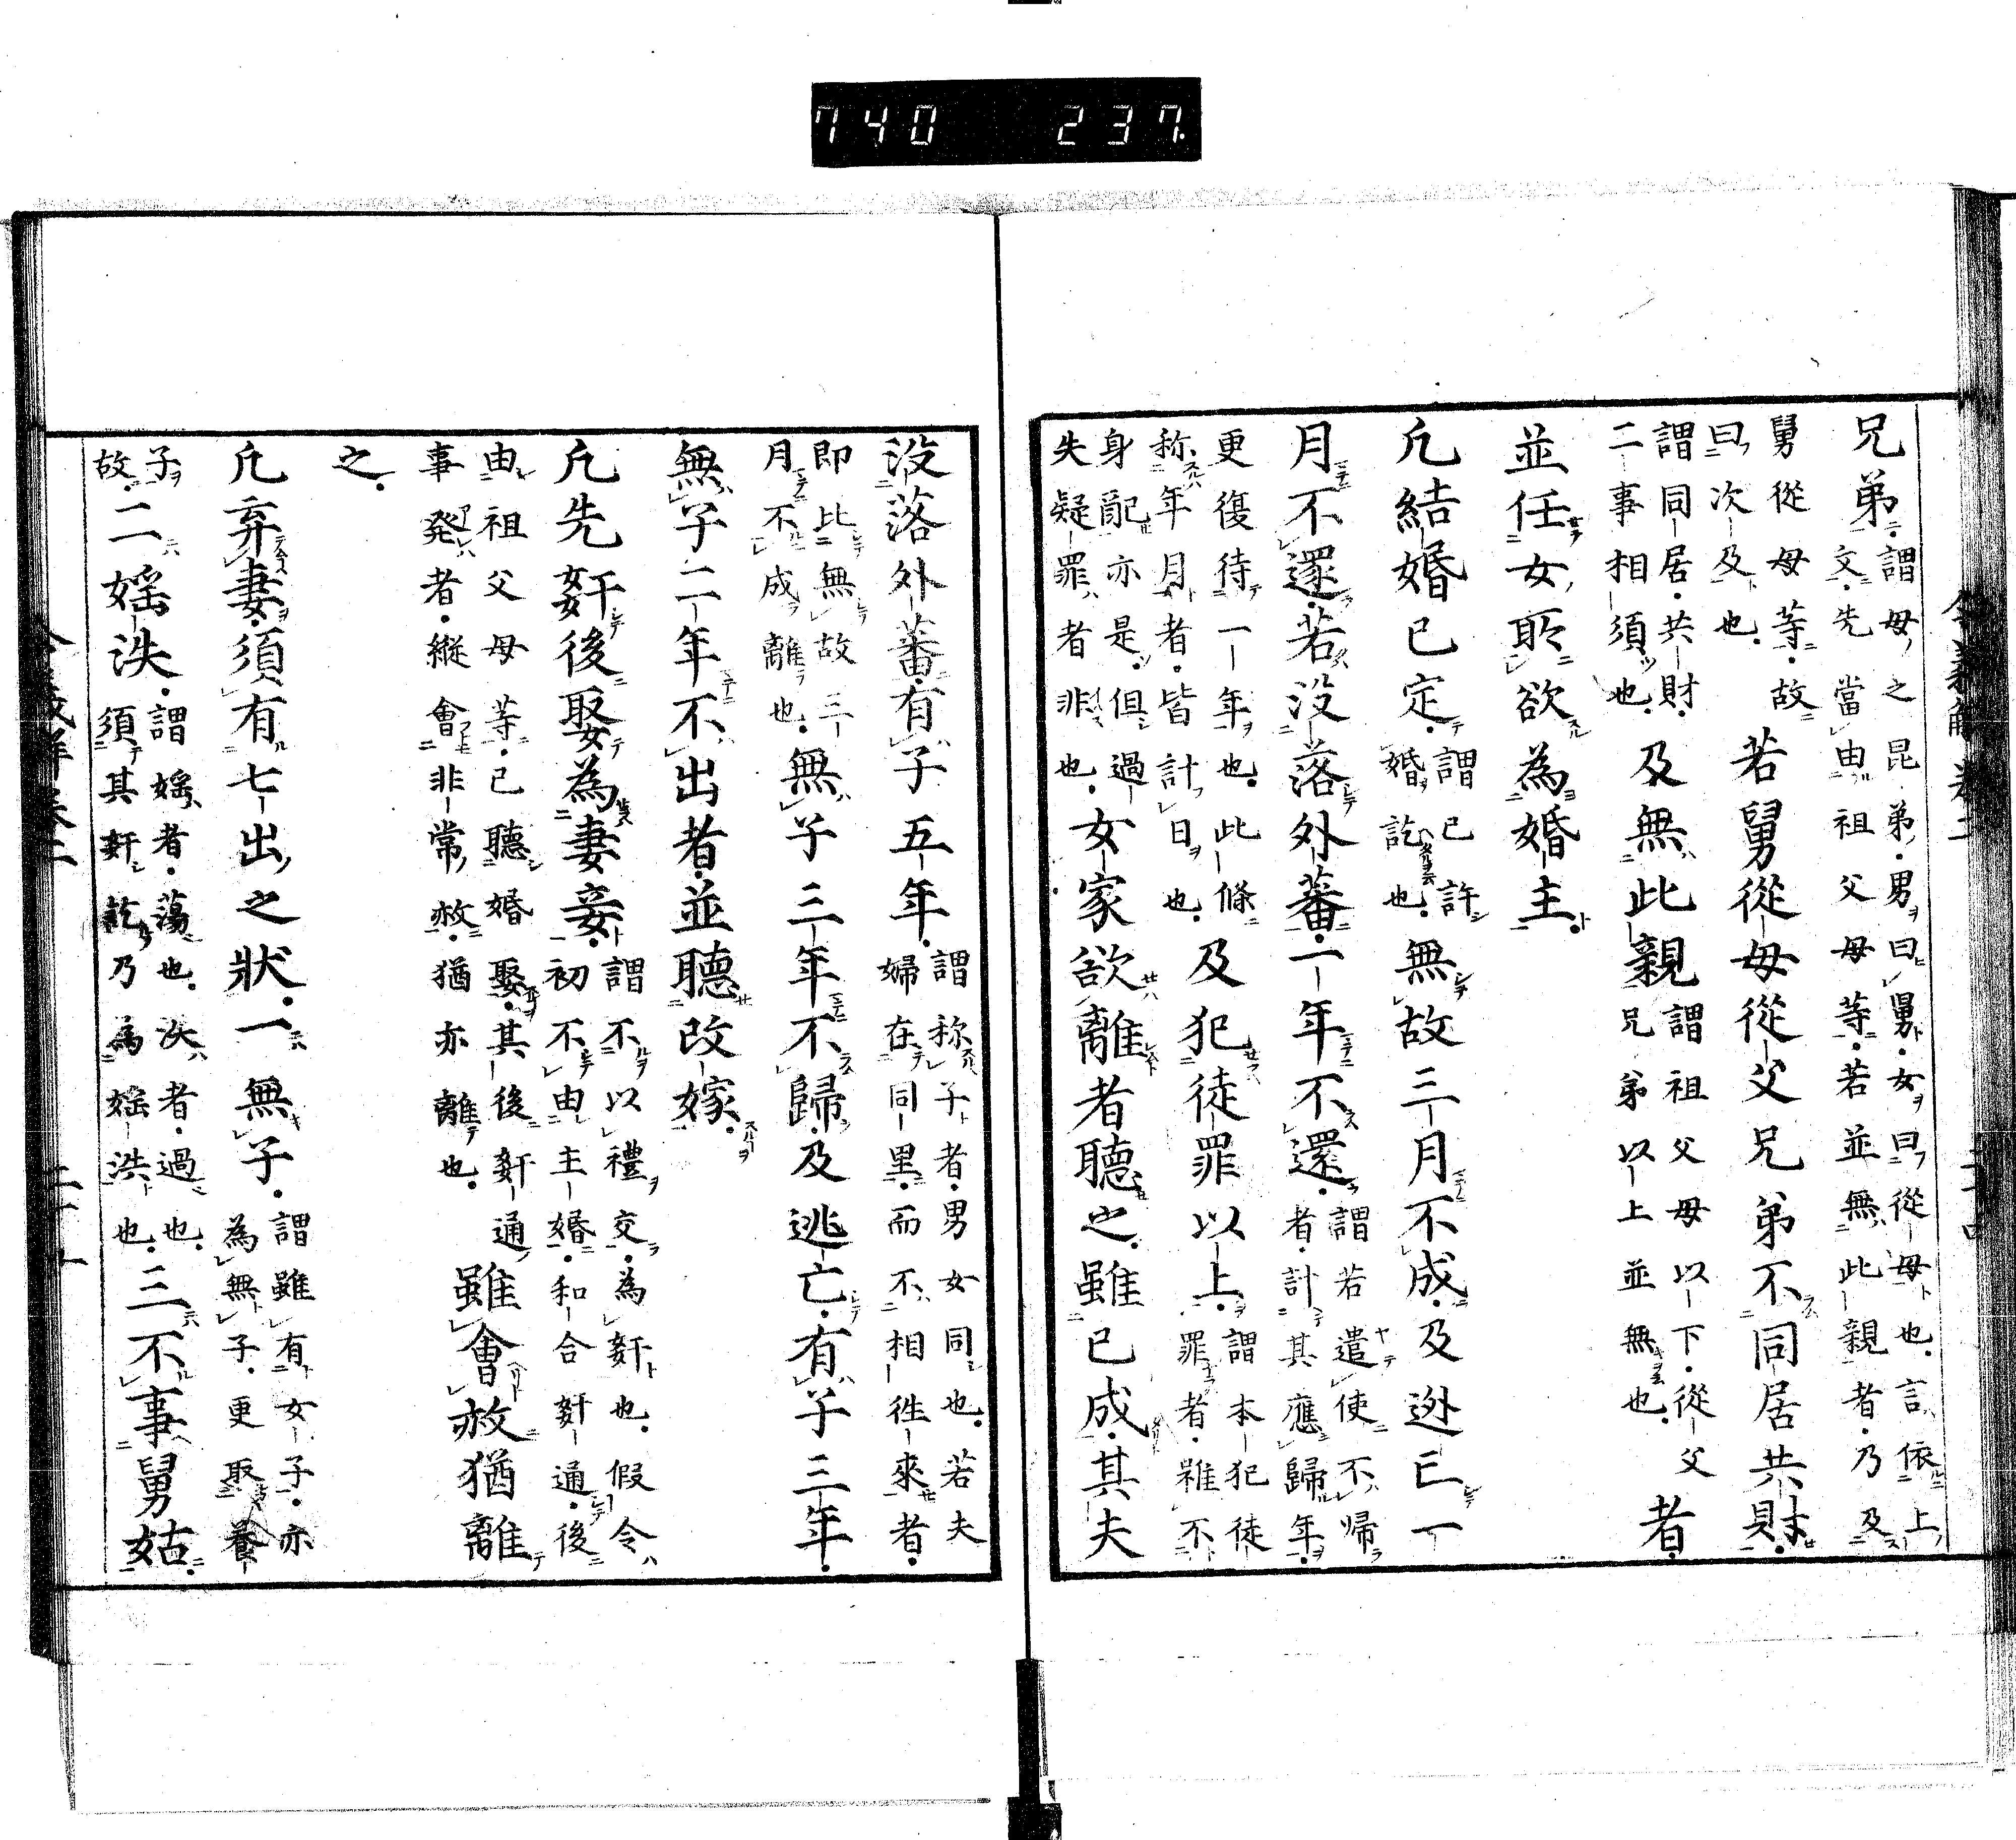 740 237
兄弟。謂母之昆弟。男曰舅。女曰從母也。言依上文。先當由祖父母等。若並無此親者。乃及
舅從母等。故曰次及也。若舅從母從父兄弟不同居共財。
謂同居。共財。二事相須也。及無此親謂祖父母以下。從父兄弟以上並無也。者。
並任女所欲為婚主。
凡結婚已定。謂已許婚訖也。無故三月不成。及逃亡一
月不還。若没落外蕃。一年不還。謂若遣使不帰者。計其應歸年。
更復待一年也。此條称年月者。皆計日也。及犯徒罪以上。謂本犯徒罪者。雖不
身配亦是。但過失疑罪者非也。女家欲離者聽之。雖已成。其夫
没落外蕃。有子五年。謂称子者。男女同也。若夫婦在同里。而不相徃來者。
即比無故三月不成離也。無子三年不歸。及逃亡。有子三年。
無子二年不出者。並聽改嫁。
凡先姧後娶為妻妾。謂不以禮交。為姧也。假令初不由主婚。和合姧通。後
由祖父母等。已聽婚娶。其後姧通事発者。縱會非常赦。猶亦離也。雖會赦猶離
之。
凡弃妻。須有七出之狀。一無子。謂雖有女子。亦為無子。更取養
子故。二婬泆。謂婬者。蕩也。泆者。過也。須其姧訖乃為婬泆也。三不事舅姑。